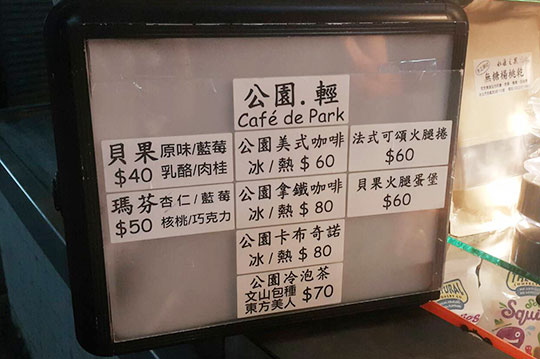 公園.輕
Café de Park
貝果 原味/藍莓
$40 乳酪/肉桂
瑪芬 杏仁/藍莓
$50 核桃/巧克力
公園美式咖啡
冰/熱 $60
公園拿鐵咖啡
冰/熱 $80
公園卡布奇諾
冰/熱 $80
公園冷泡茶
文山包種 $70
東方美人
法式可頌火腿捲
$60
貝果火腿蛋堡
$60
無糖楊桃乾